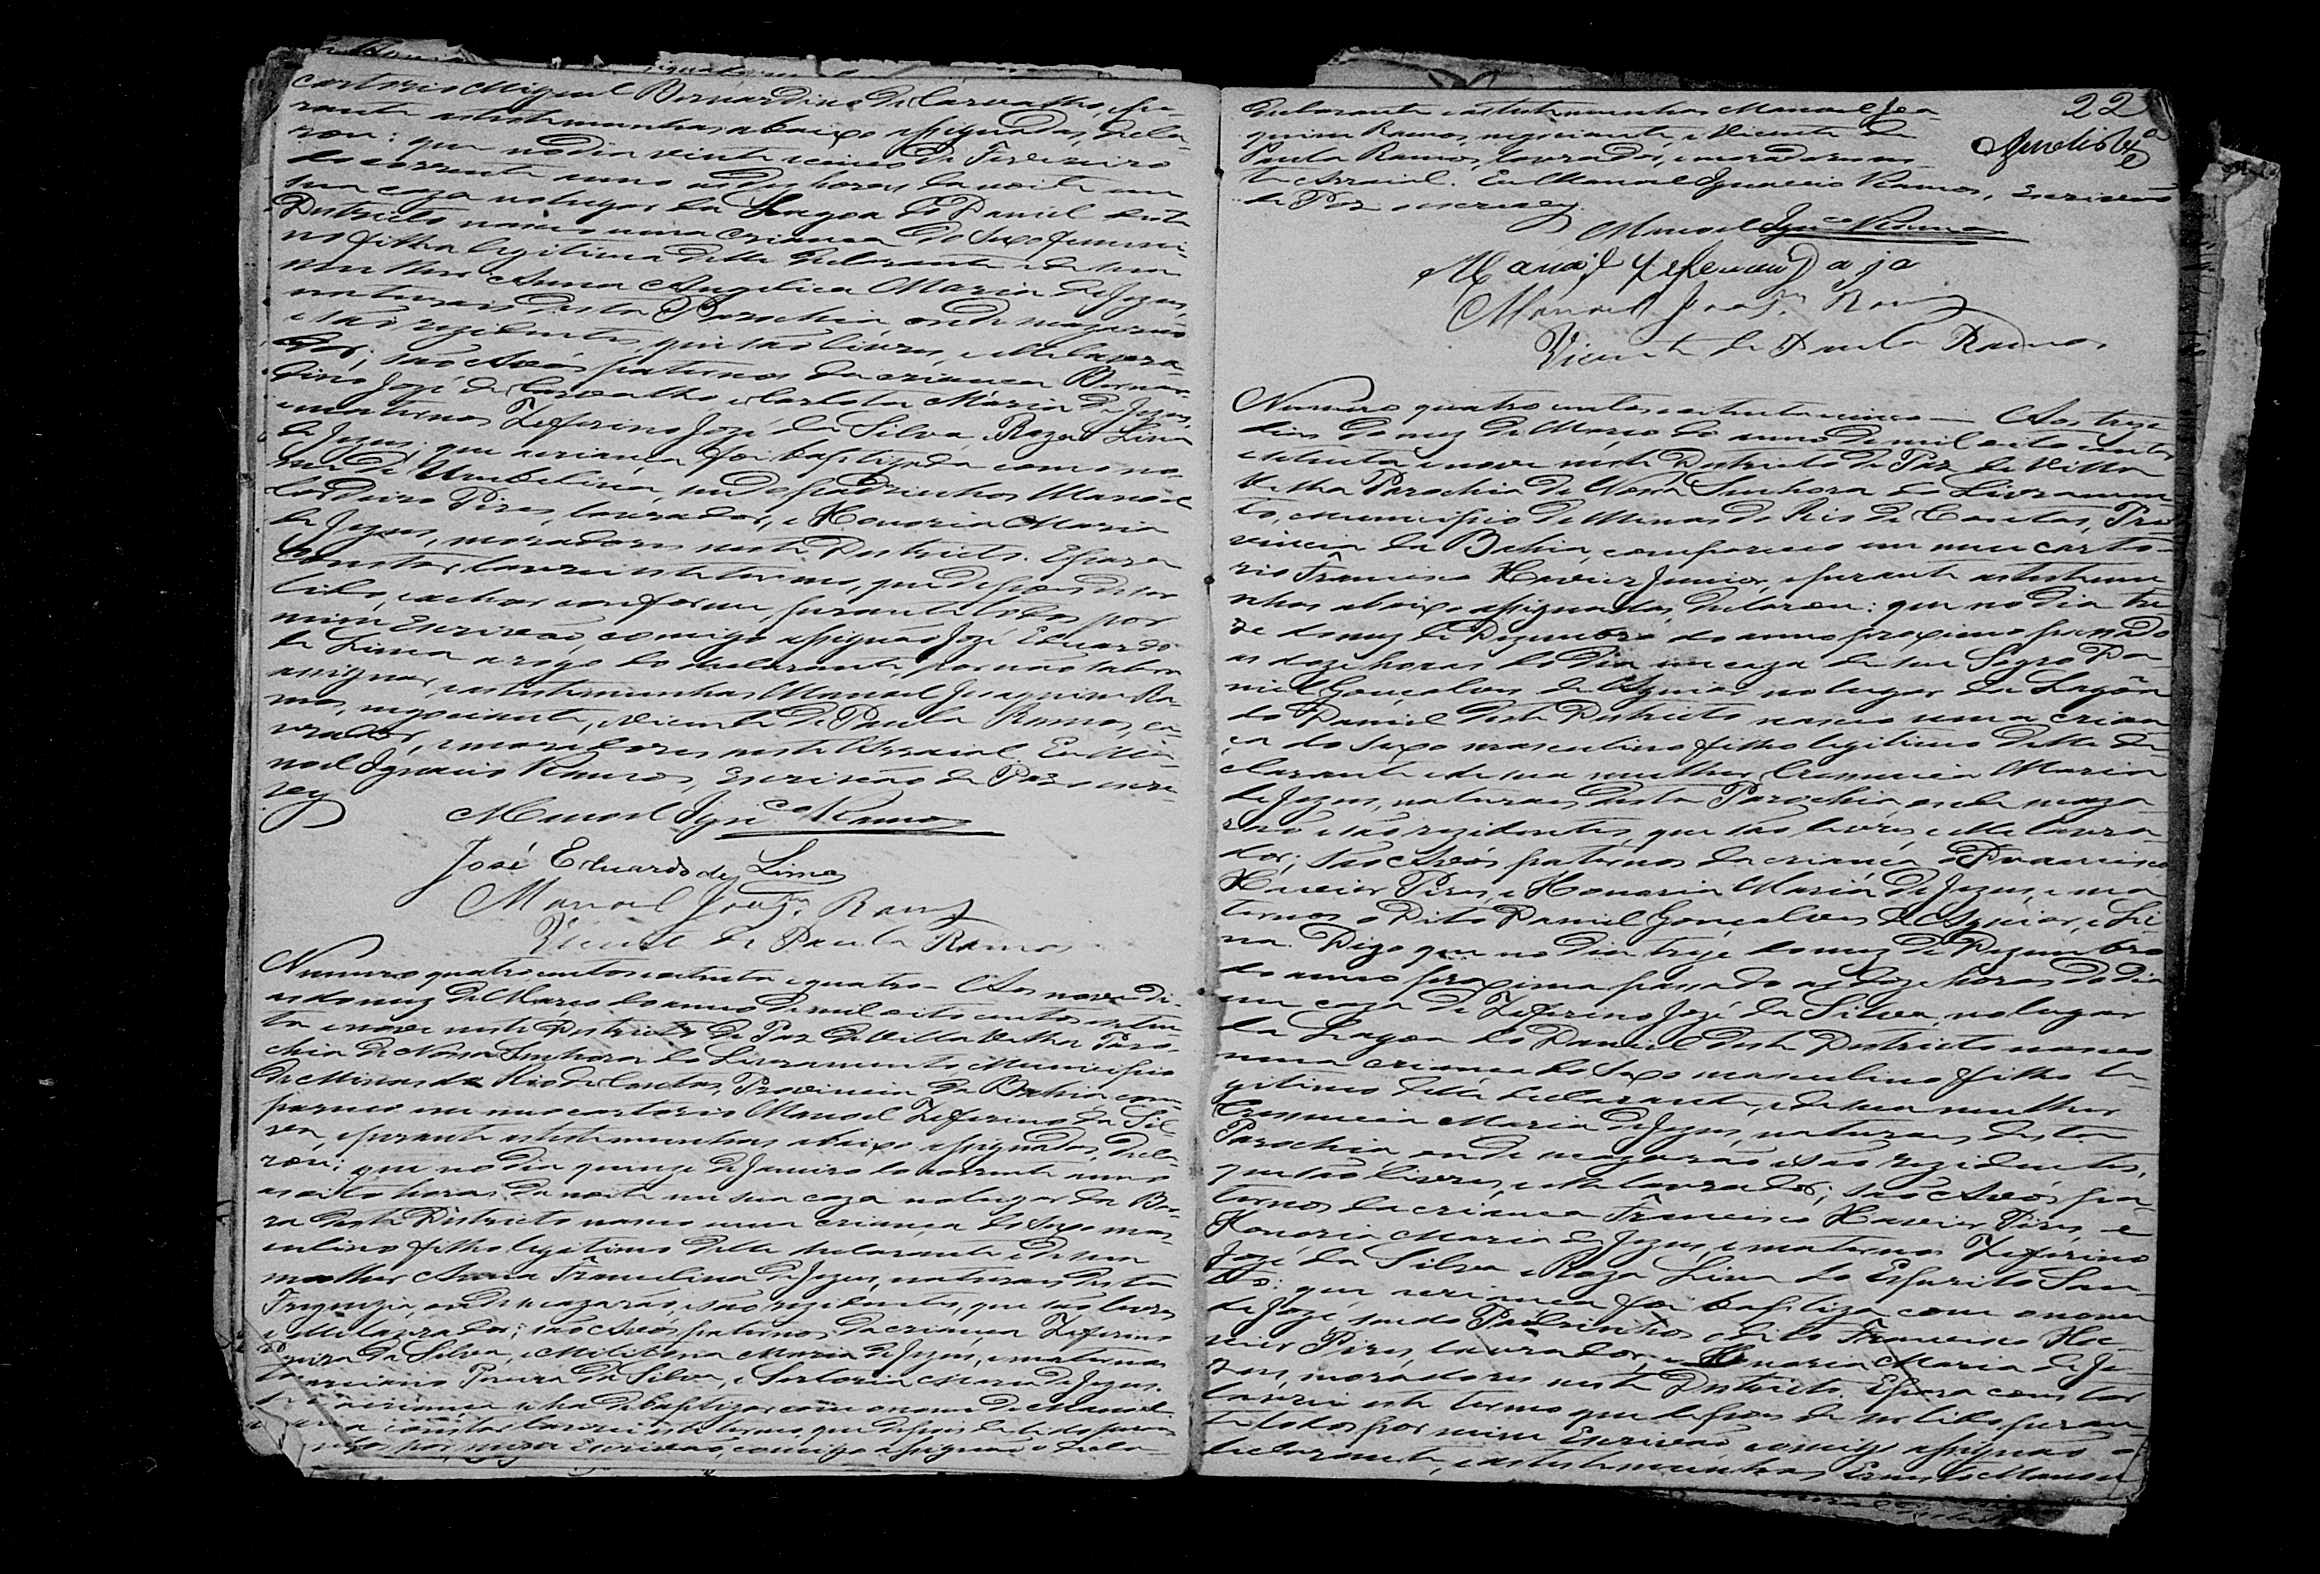 cartorio Miguel Bernardino de Carvalho, pe-
rante as testemunhas abaixo assignadas, decla-
rou: que no dia vinte e cinco de Fevereiro
do corrente anno as dez horas da noite em
sua caza no lugar da Lagoa do Daniel deste
Districto nasceo uma crianca do sexo femini-
no filha legitima delle declarante e de sua
mulher Anna Angelica Maria de Jezus,
naturais desta Parochia, onde mazarão
e são rezidentes, que são livres, e elle lavra-
dor; são Avós paternos da crianca Bernar-
dino Jozé de Carvalho e Carlota Maria de Jezus,
e maternos Zeferino Jozé da Silva, e Roza Lina
de Jezus; que a crianca foi baptizada com o no-
me de Umbelina, sendo padrinhos Manoel
Cordeiro Pires, lavrador, e Honoria Maria
de Jezus, moradores neste Districto. E para
constar lavrei este termo, que depois de ser
lido, e achar conforme, perante todos por
mim Escrivão, comigo assignão Jozé Eduardo
de Lima a rogo do declarante, por não saber
assignar, e as testemunhas Manoel Joaquim Ra-
mos, negociante, e Vicente de Paula Ramos, la-
vrador, e moradores neste Arraial. Eu Ma-
noel Ignacio Ramos, Escrivão de Paz o escre-
vy
Manoel Ignco Ramos
José Eduardo de Lima
Manoel Joaqm. Ramos
Vicente de Paula Ramos
Numero quatro centos e trinta e quatro - Aos nove di-
as do mez de Março do anno de mil oito centos e seten-
ta e nove neste Districto de Paz de Villa Velha Paro-
chia de Nossa Senhora do Livramento, Municipio
de Minas do Rio de Contas, Provincia da Bahia com-
pareceo em meu cartorio Manoel Zeferino da Sil-
va, e perante as testemunhas abaixo assignadas, decla-
rou; que no dia quinze de Janeiro do corrente anno
as oito horas da noite em sua caza no lugar da
desta Districto nasceo uma crianca do sexo mas-
culino filho legitimo delle declarante e de sua
mulher Anna Francelina de Jezus, naturais desta
Freguezia, onde mazarão, e são rezidentes, que são livres
e elle lavrador; são Avós paternos da crianca Zeferino
da Silva, e Militana Maria de Jezus, e maternos
Pereira da Silva, e Maria de Jezus.
crianca se ha de baptizar com o nome de Manoel.
constar lavrei este termo que depois de lido peran-
por mim Escrivão, comigo assignão o decla-
22
declarante e as testemunhas Manoel Joa-
quim Ramos, negociante, e Vicente de
Paula Ramos, lavrador, e moradores nes-
te Arraial. Eu Manoel Ignacio Ramos, Escrivão
de Paz o escrevy
Manoel Ignco Ramos
Manoel
Manoel Joaqm. Ramos
Vicente de Paula Ramos
Numero quatro centos e trinta e cinco - Aos treze
dias do mez de Março do anno de mil oito centos
e setenta e nove neste Districto de Paz de Villa
Velha Parochia de Nossa Senhora do Livramen-
to, Municipio de Minas do Rio de Contas, Pro-
vincia da Bahia, compareceo em meu carto-
rio Francisco Xavier Junior, e perante as testemu-
nhas abaixo assignadas, declarou: que no dia tre-
ze do mez de Dezembro do anno proximo passado
as doze horas do dia em caza de seu Sogro Da-
niel Gonçalves de Aguiar no lugar da Lagôa
do Daniel deste Districto nasceo uma crian-
ça do sexo masculino filho legitimo delle de-
clarante e de sua mulher Maria
de Jezus, naturais desta Parochia, onde maza-
rão e são rezidentes, que são livres, e elle lavra-
dor; são Avós paternos da crianca Francisco
Xavier Pires, e Honoria Maria de Jezus, e ma-
ternos o Dito Daniel Gonçalves de Aguiar, e Li-
na. Digo que no dia treze do mez de Dezembro
do anno proximo passado as doze horas do dia
em caza de Zeferino Jozé da Silva, no lugar
da Lagoa do Daniel deste Districto nasceo
uma crianca do sexo masculino filho le-
gitimo delle declarante, e de sua mulher
Maria de Jezus, naturais desta
Parochia onde mazarão e são rezidentes,
que são livres, e elle lavrador; são Avós pa-
ternos da crianca Francisco Xavier Pires, e
Honoria Maria de Jezus, e maternos Zeferino
Jozé da Silva e Roza Lina do Espirito San-
to: que a crianca foi baptiza com o nome
de Jozé, sendo Padrinhos o dito Francisco Xa-
vier Pires, lavrador, e Honoria Maria de Je-
zus, moradores neste Districto. E para constar
lavrei este termo que depois de ser lido peran-
te todos por mim Escrivão, comigo assignão o
declarante, e as testemunhas Ernesto Manoel